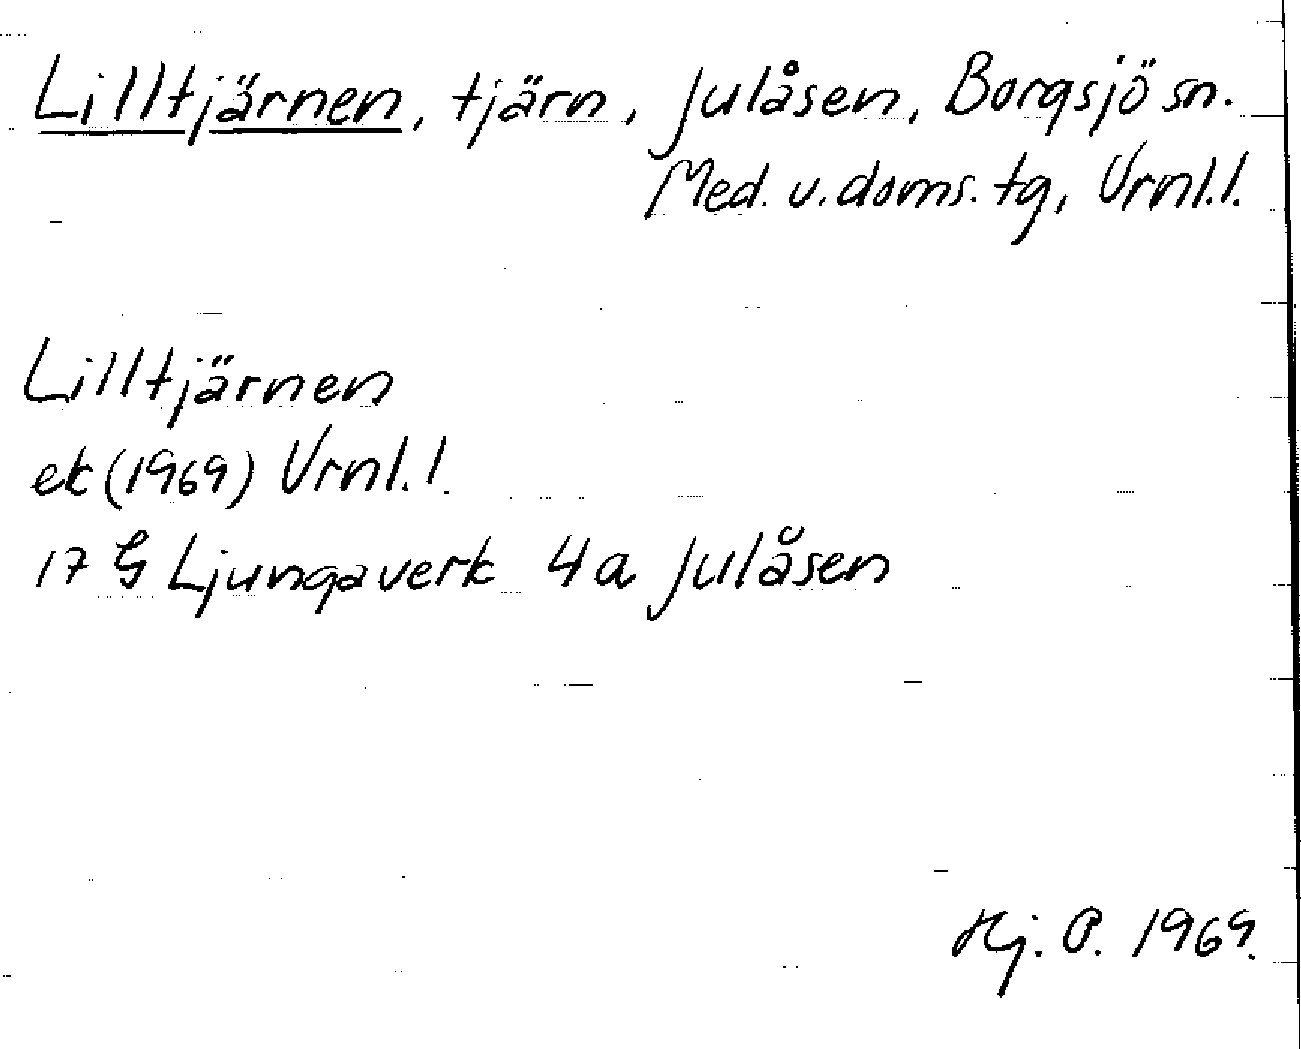 Lilltjärnen, tjärn, Julåsen, Borgsjö sn.
Med. v. doms. tg, Vrnl. l.
Lilltjärnen
ek (1969) Vrnl. l.
17 G Ljungaverk 4a Julåsen
Hj. P. 1969.